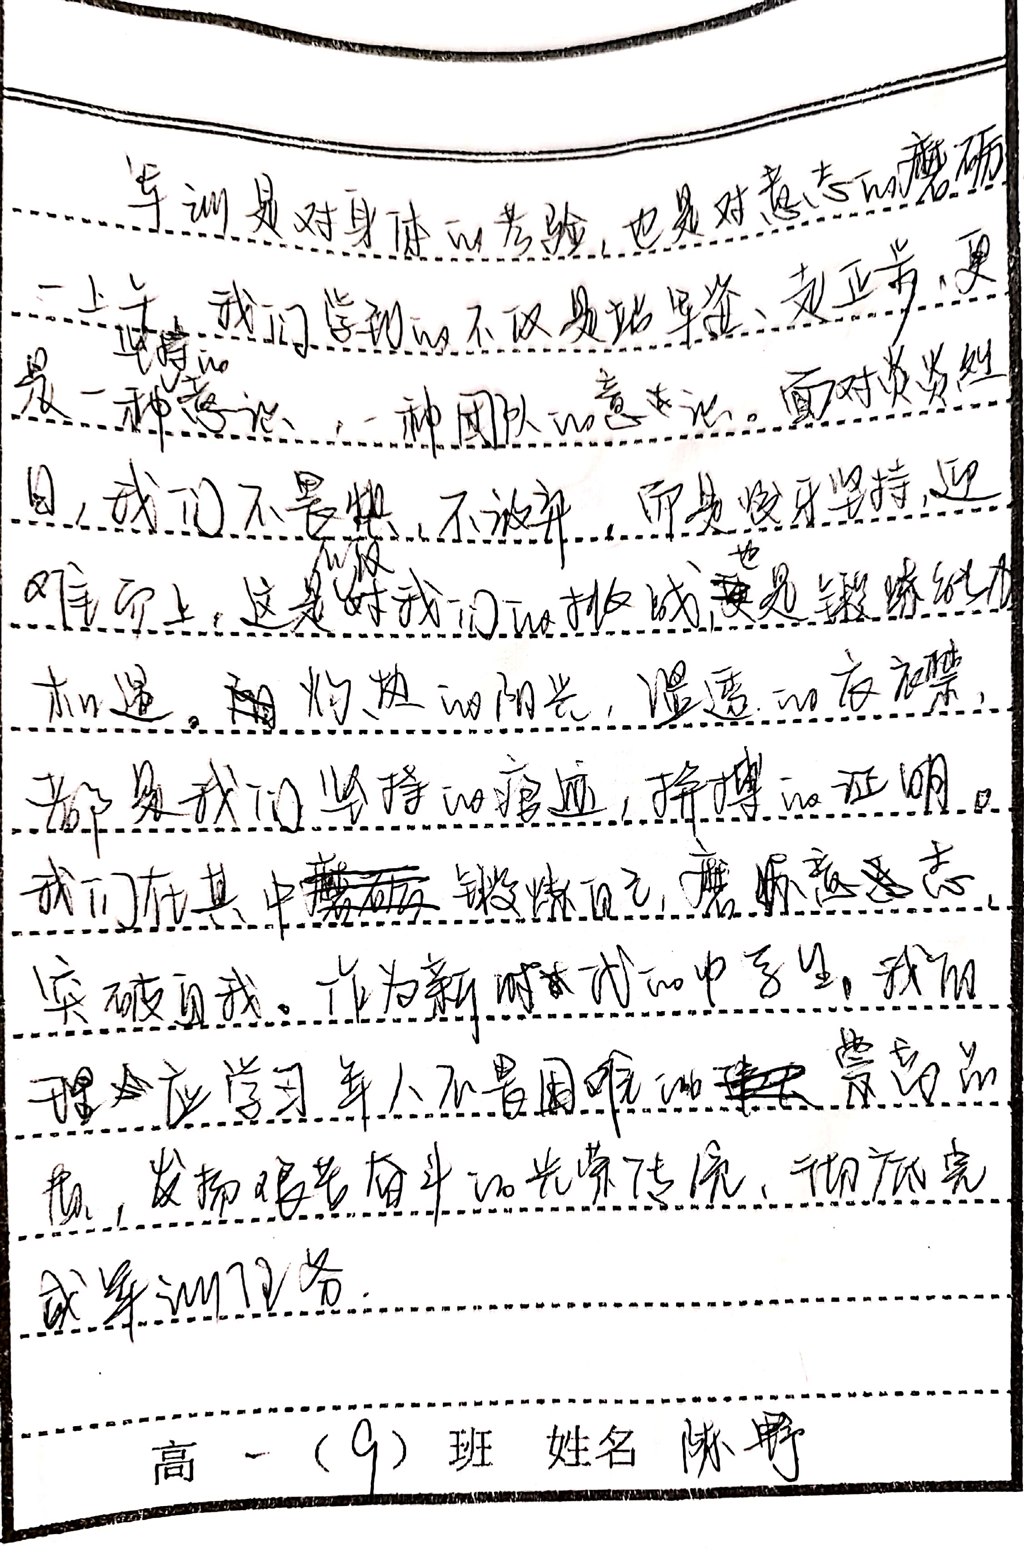 军训是对身体的考验,也是对意志的磨砺
一上午,我们学到的不仅是站军姿、走正步,更
坚持的
是一种意识,一种团队的意识。面对炎炎烈
日,我们不畏惧,不放弃,而是咬牙坚持,迎
仅仅 也
难而上,这是对我们的挑战,是锻炼的
机遇。灼热的阳光,湿透的衣襟,
都是我们坚持的痕迹,拼搏的证明。
我们在其中锻炼自己,磨砺意志,
突破自我。作为新时代的中学生,我们
理应学习军人不畏困难的崇高品
质,发扬艰苦奋斗的光荣传统,彻底完
成军训任务.
高一(9)班 姓名 陈野